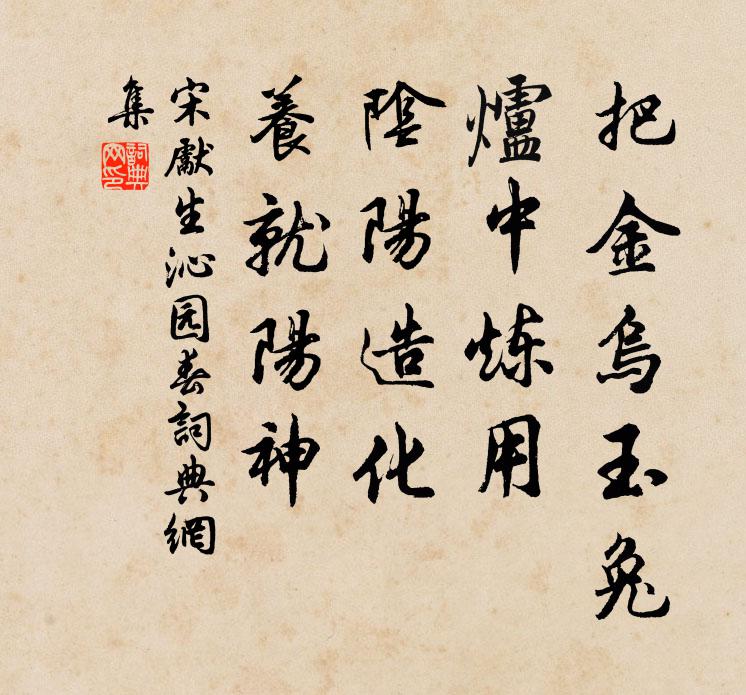 把金烏玉兔
爐中炼用
陰陽造化
養就陽神
宋獻生沁园春詞典網
集
詞典
网印